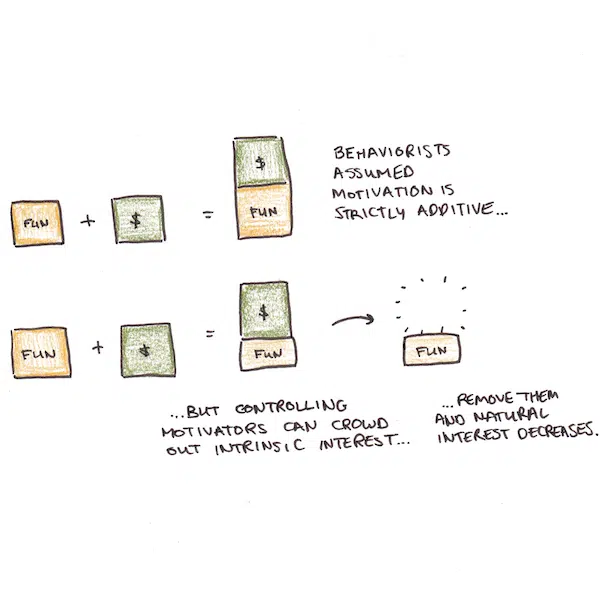 $
FUN + $ = FUN
BEHAVIORISTS
ASSUMED
MOTIVATION IS
STRICTLY ADDITIVE...
FUN + $ = $
FUN
FUN
...BUT CONTROLLING
MOTIVATORS CAN CROWD
OUT INTRINSIC INTEREST...
...REMOVE THEM
AND NATURAL
INTEREST DECREASES.